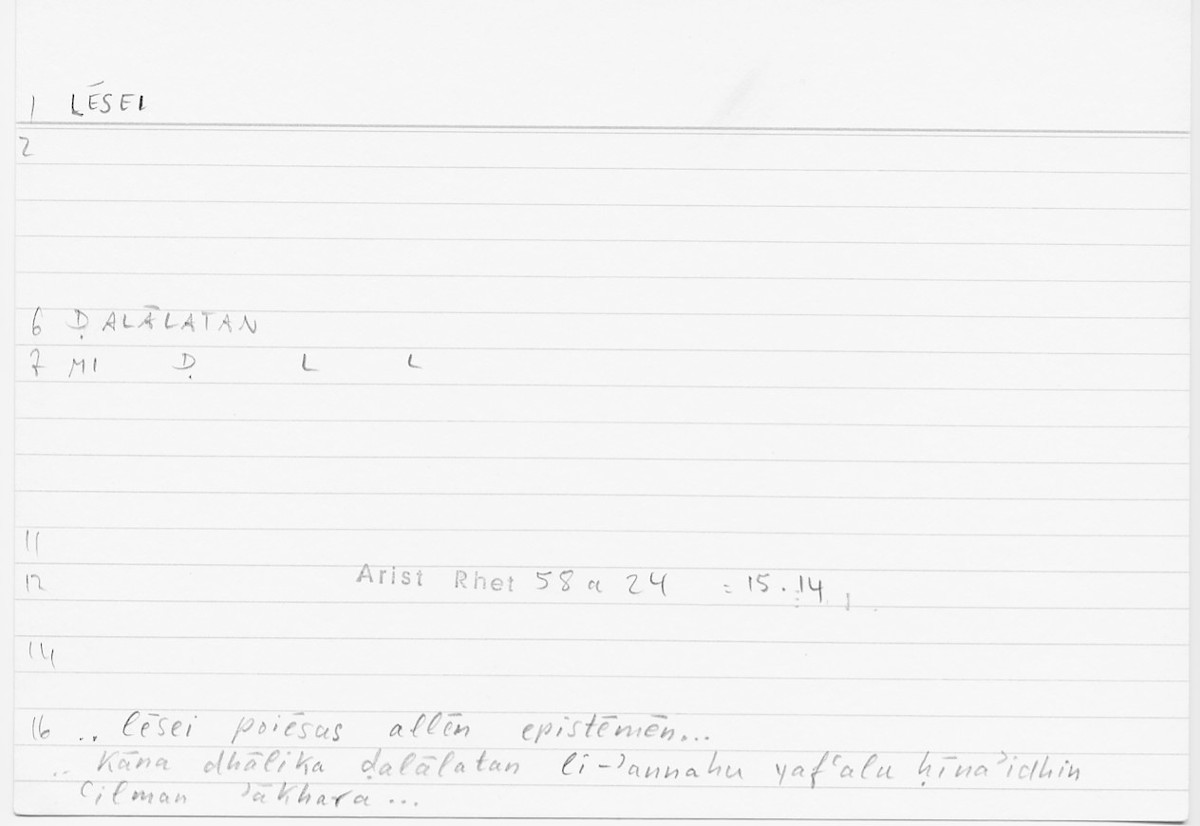 1 LĒSEI
2
6 ḌALĀLATAN
7 MI Ḍ L L
11
12 Arist Rhet 58 a 24 = 15.14
14
16 .. lēsei poiēsas allēn epistēmēn...
.. Kāna dhālika ḍalālatan li-ʾannahu yafʿalu ḥīnaʾidhin
ʿilman ʾākhara ...